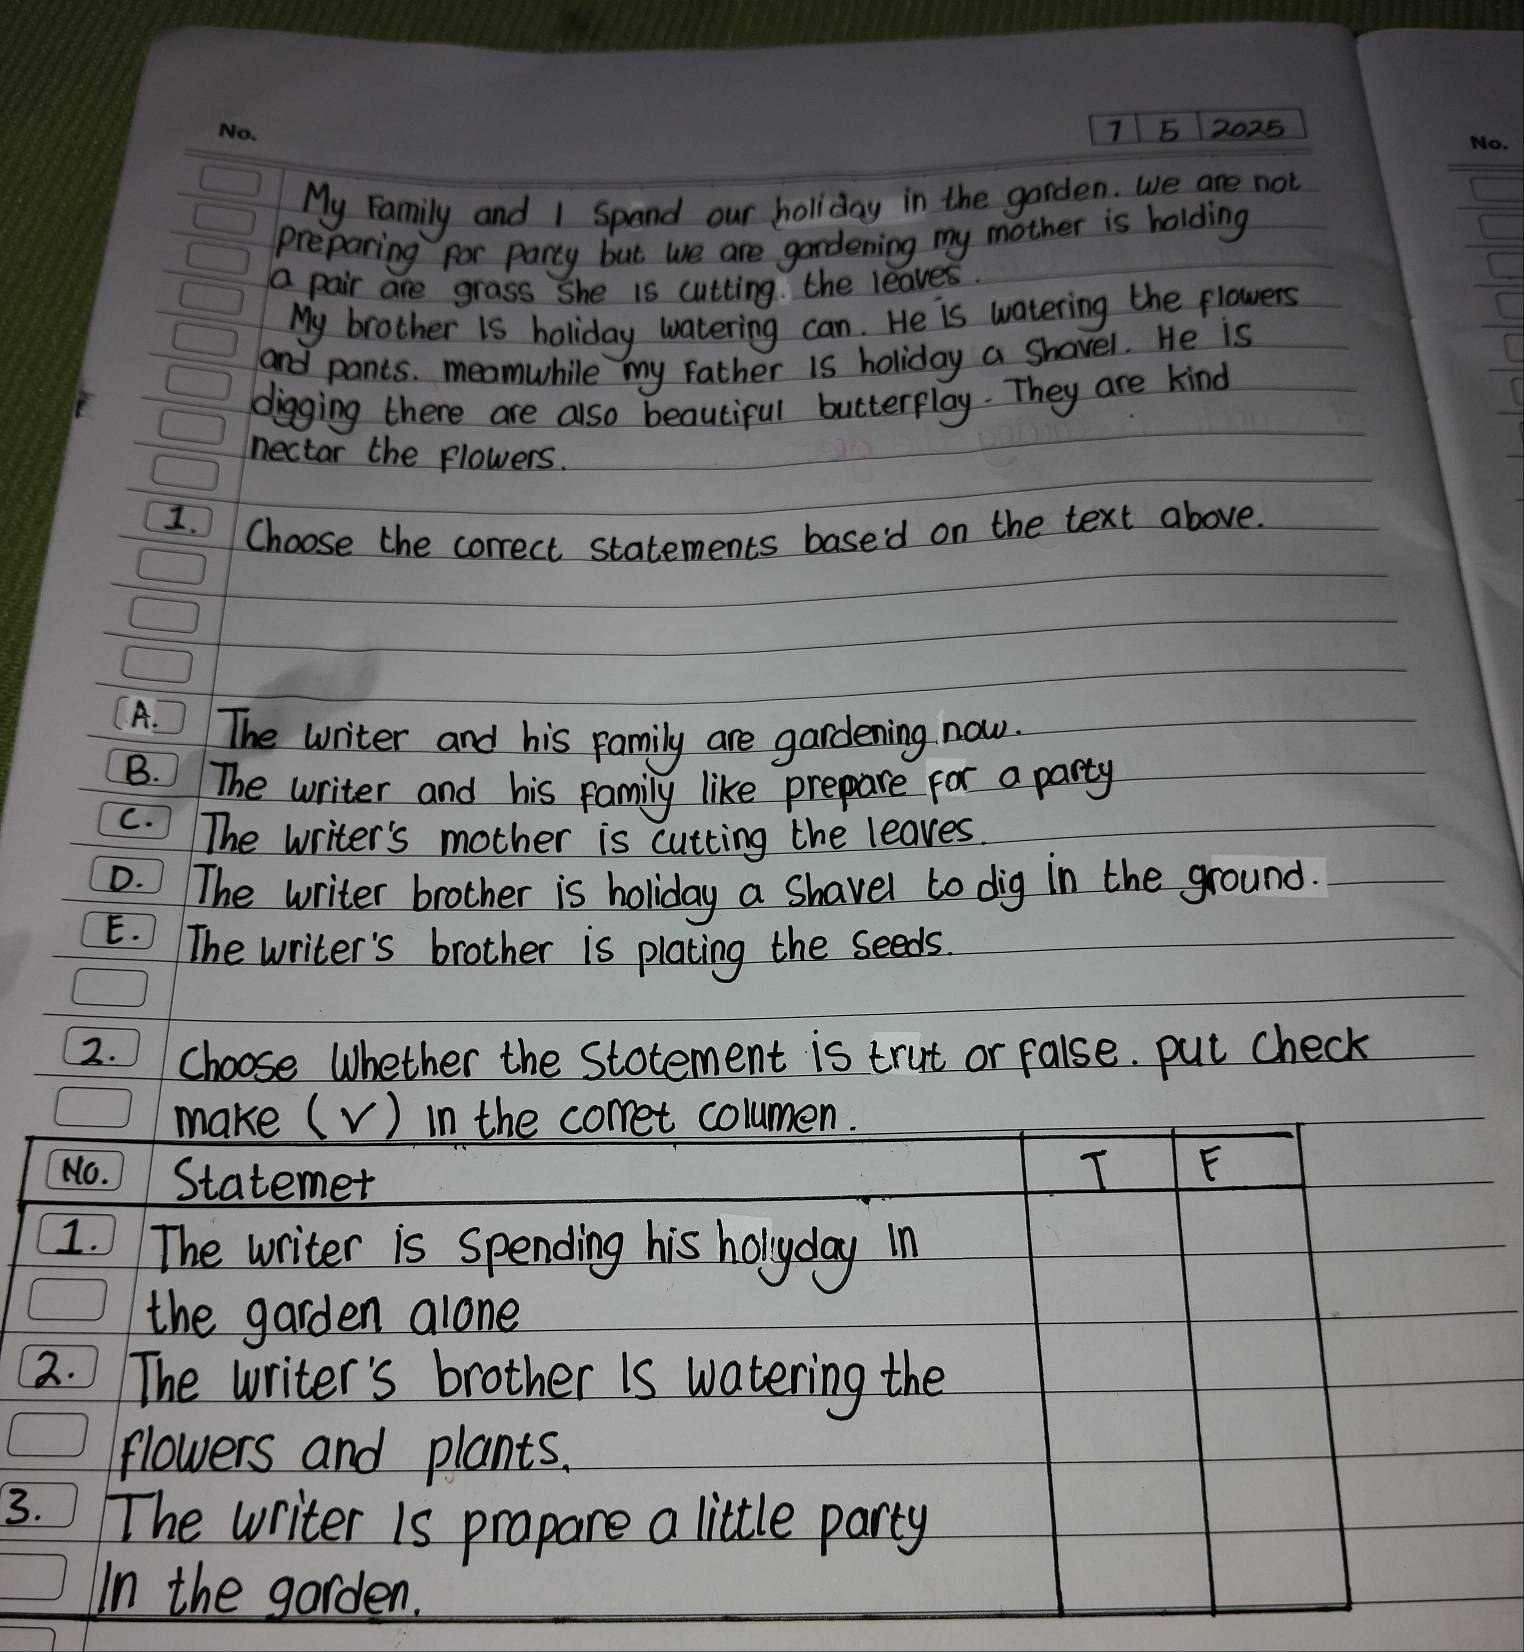 No.
7 5 2025
No.
My Family and I Spand our holiday in the garden. We are not
preparing for party but we are gardening my mother is holding
a pair are grass She is cutting. the leaves.
My brother is holiday watering can. He is watering the flowers
and pants. meamwhile my Father is holiday a Shavel. He is
digging there are also beautiful butterflay. They are kind
nectar the flowers.
1. Choose the correct statements base'd on the text above.
A. The writer and his family are gardening now.
B. The writer and his family like prepare for a party
C. The writer's mother is cutting the leaves.
D. The writer brother is holiday a Shavel to dig in the ground.
E. The writer's brother is plating the seeds.
2. Choose Whether the Stotement is trut or false. put check
make (v) in the corret columen.
No. Statemet T F
1. The writer is Spending his holiyday in
the garden alone
2. The writer's brother is watering the
flowers and plants.
3. The writer is propare a little party
In the garden.